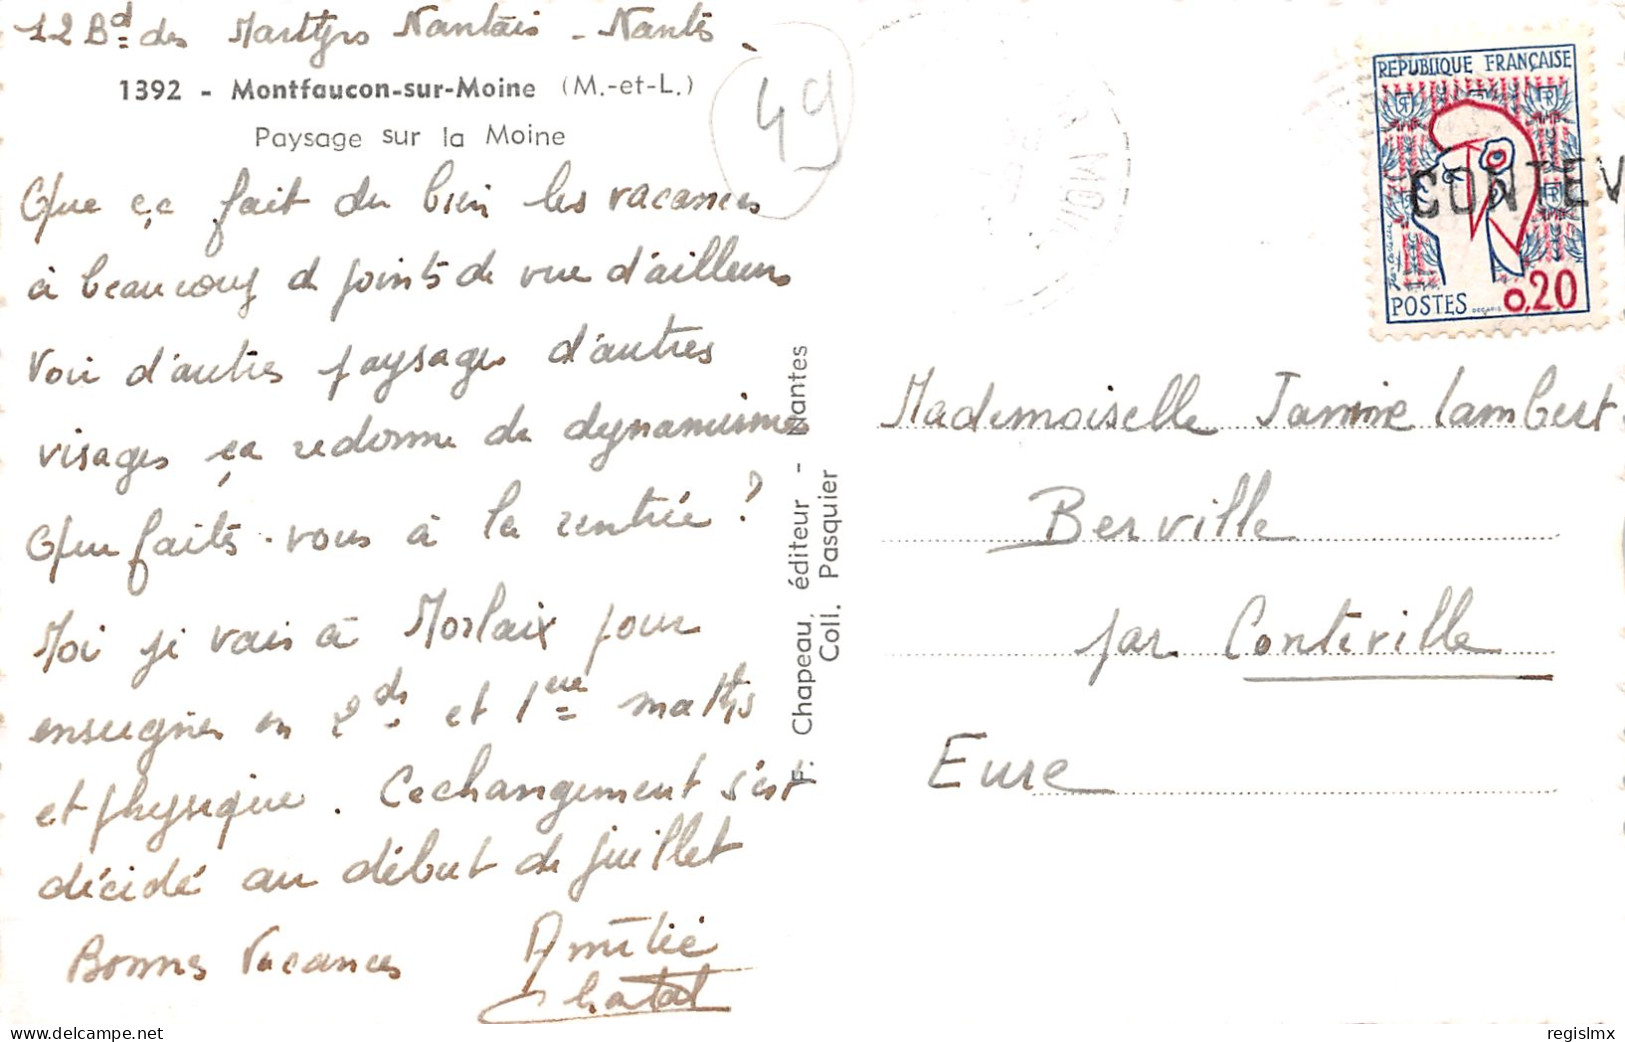 12 Bd des Martyrs Nantais - Nantes
1392 - Montfaucon-sur-Moine (M.-et-L.)
Paysage sur la Moine
49
Que ça fait du bien les vacances
à beaucoup de points de vue d'ailleurs
Voir d'autres paysages d'autres
visages ça redonne du dynamisme
Que faites-vous à la rentrée ?
Moi je vais à Morlaix pour
enseigner en 2de et 1ere maths
et physique. Ce changement s'est
décidé au début de juillet
Bonnes Vacances Amitié
Chatal
F. Chapeau, éditeur - Nantes
Coll. Pasquier
REPUBLIQUE FRANÇAISE
RF
CONTEV
POSTES 0,20
DECARIS
Mademoiselle Janine Lambert
Berville
par Conteville
Eure
delcampe.net
regislmx